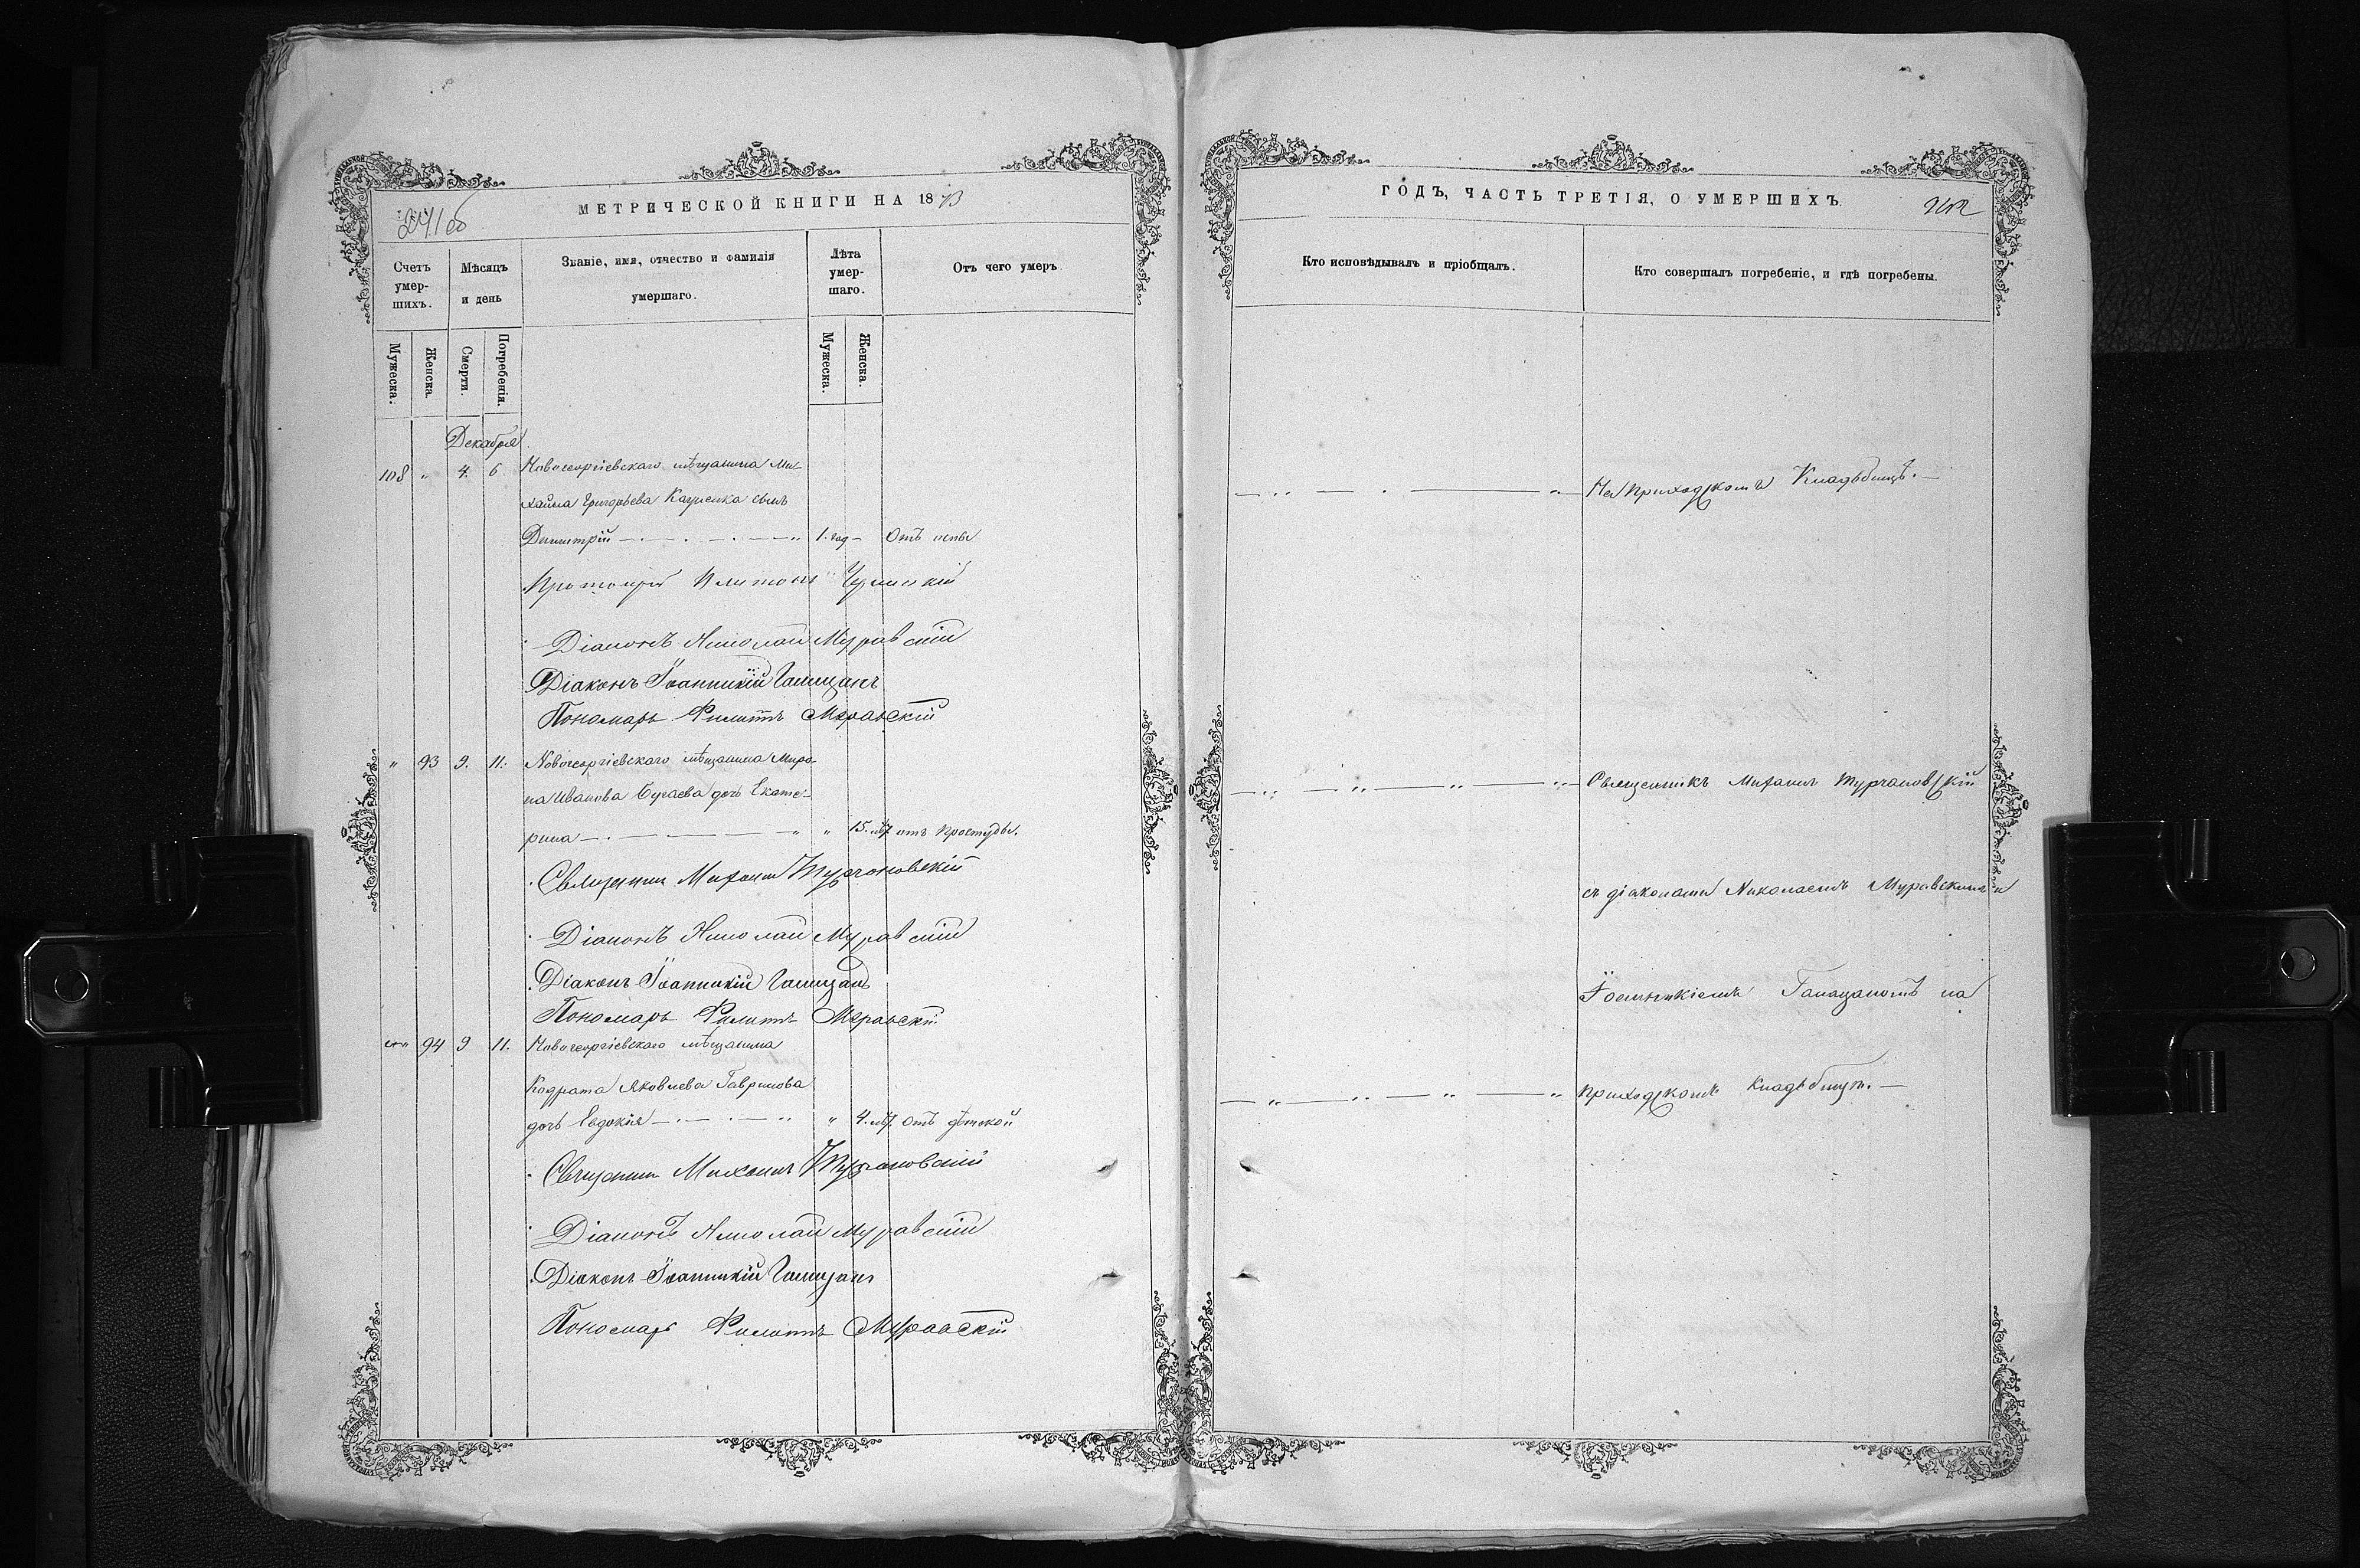 МЕТРИЧЕСКОЙ КНИГИ НА 1873
241 об
Счетъ умер-шихъ.
Мѣсяцъ и день
Званіе, имя, отчество и фамилія умершаго.
Лѣта умер-шаго.
Отъ чего умеръ
Мужеска.
Женска.
Смерти.
Погребенія.
Мужеска.
Женска.
Декабря
108 " 4. 6 Новогеоргіевскаго мѣщанина Ми-
хаила Григорьева сынъ
Димитрій 1. год Отъ оспы
Протоіерей Платонъ
Діаконъ Николай Муравскій
Діаконъ Іоанникій Галицанъ
Пономарь Филиппъ Муравскій
" 93 9. 11. Новогеоргіевскаго мѣщанина Миро-
на Иванова Бугаева дочь Екате-
рина " 15. лѣт отъ простуды.
Священникъ Михаилъ Турчановскій
Діаконъ Николай Муравскій
Діаконъ Іоанникій Галицанъ
Пономарь Филиппъ Муравскій
94 9 11. Новогеоргіевскаго мѣщанина
Кодрата Яковлева Гаврилова
дочь Евдокія " 4. лѣт Отъ дѣтской
Священникъ Михаилъ Турчановскій
Діаконъ Николай Муравскій
Діаконъ Іоанникій Галицанъ
Пономарь Филиппъ Муравскій
ГОДЪ, ЧАСТЬ ТРЕТІЯ, О УМЕРШИХЪ.
242
Кто исповѣдывалъ и пріобщалъ.
Кто совершалъ погребеніе, и гдѣ погребены.
На приходскомъ Кладьбищѣ.
Священникъ Михаилъ Турчановскій
съ діаконами Николаемъ Муравскимъ и
Іоанникіемъ Галицаномъ на
приходскомъ Кладьбищѣ.